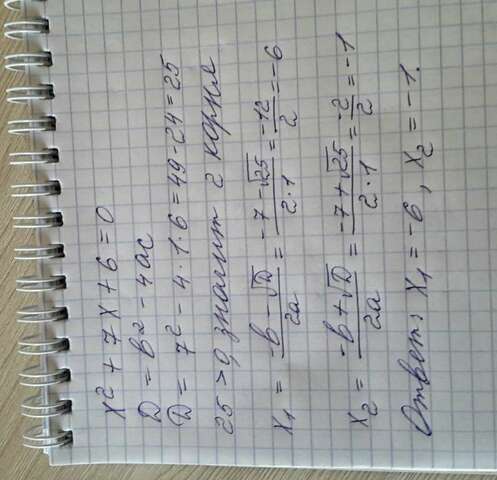 x² + 7x + 6 = 0
D = b² - 4ac
D = 7² - 4 · 1 · 6 = 49 - 24 = 25
25 > 0, значит 2 корня
x₁ = (-b - √D)/2a = (-7 - √25)/(2 · 1) = -12/2 = -6
x₂ = (-b + √D)/2a = (-7 + √25)/(2 · 1) = -2/2 = -1
Ответ: x₁ = -6, x₂ = -1.